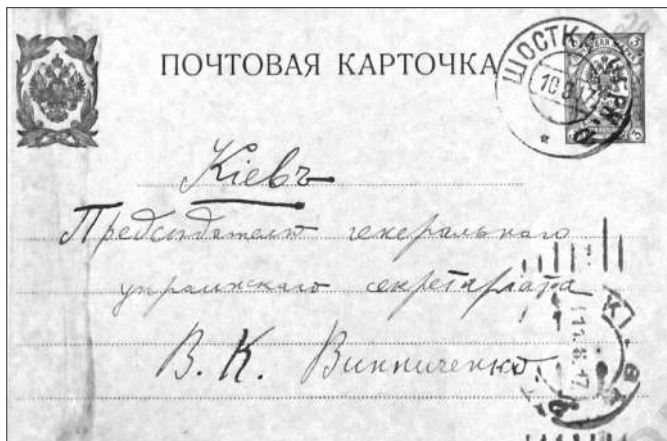 ПОЧТОВАЯ КАРТОЧКА
ШОСТКА
10 8 17
Кіевъ
Председателю генерального
украинскаго секретариата
В. К. Винниченко
КІЕВ
11 8 17